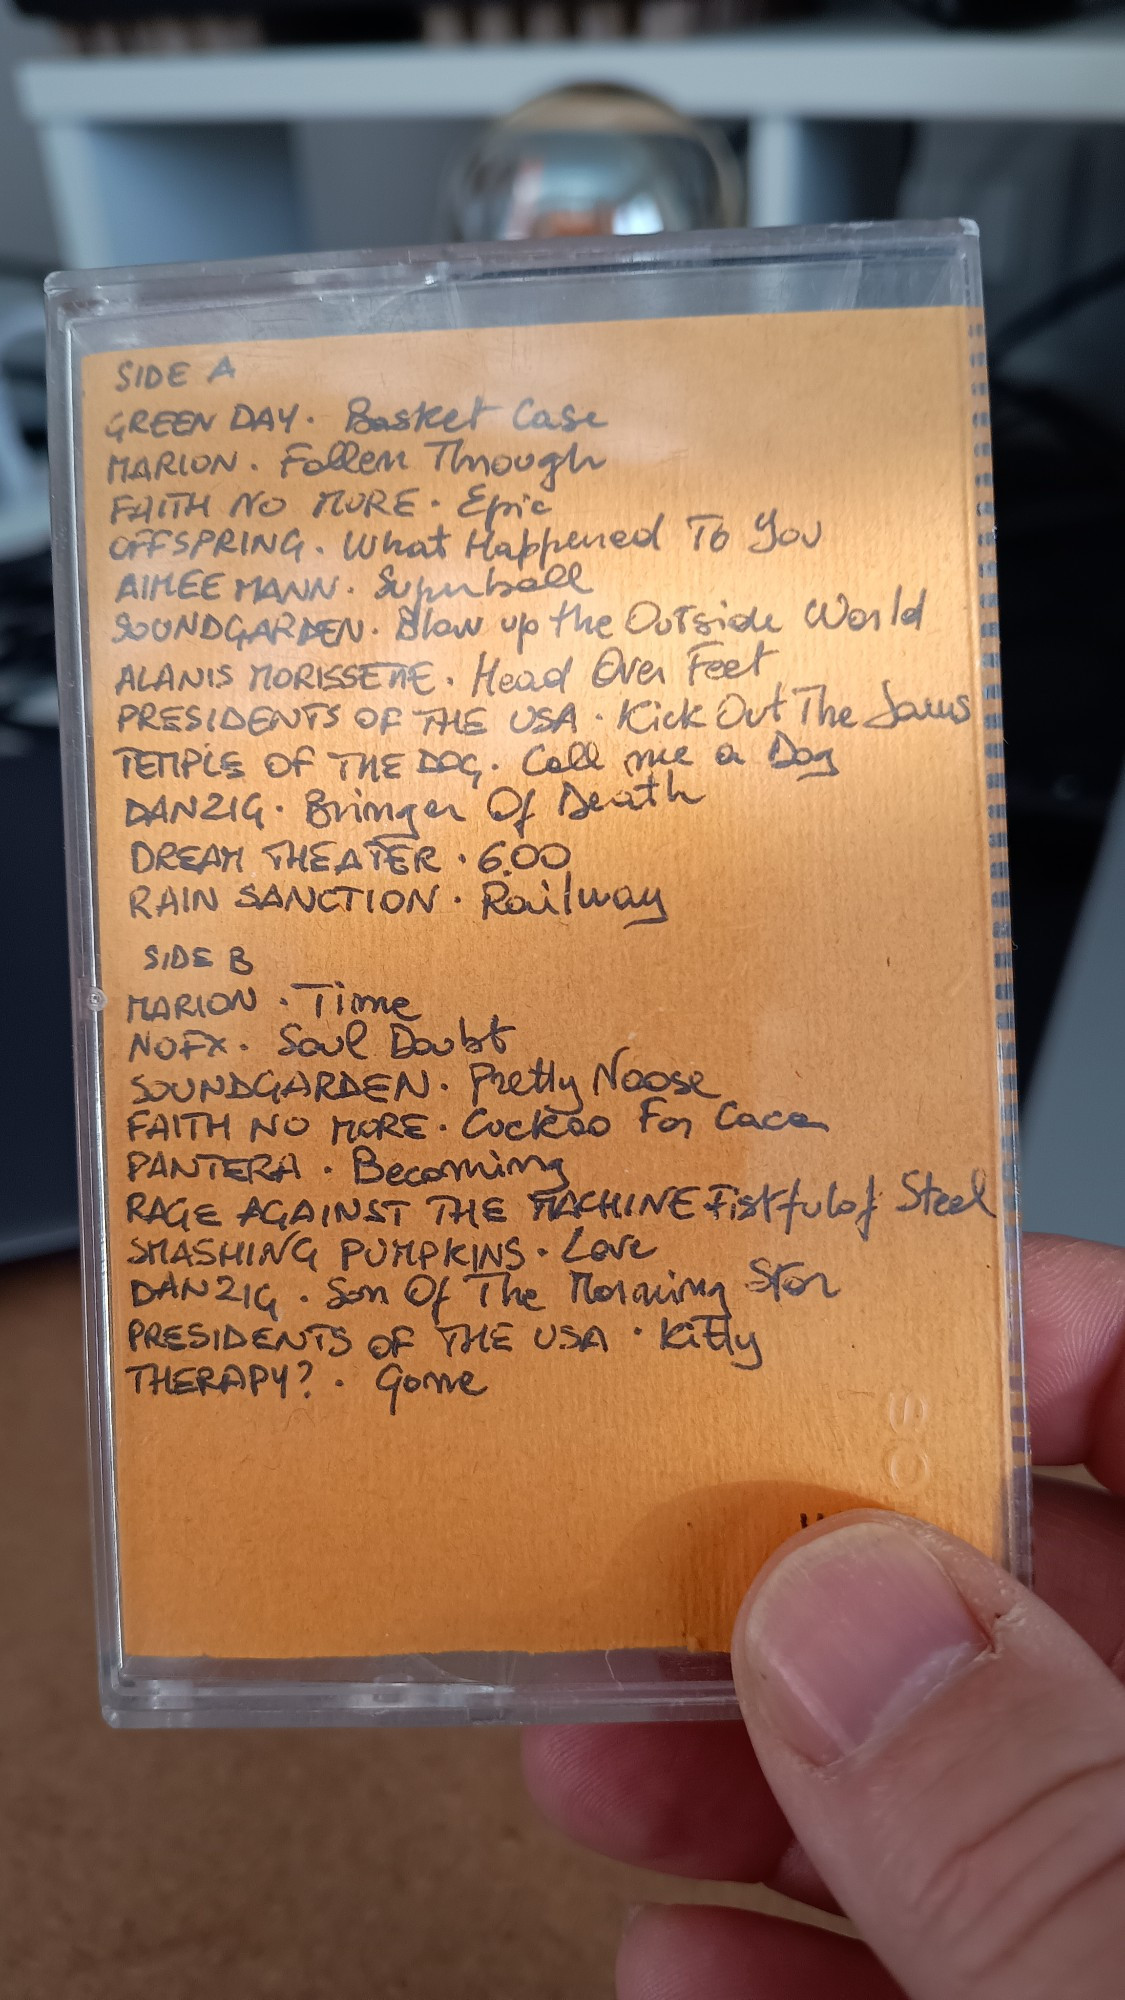 SIDE A
GREEN DAY. Basket Case
MARION. Fallen Through
FAITH NO MORE. Epic
OFFSPRING. What Happened To You
AIMEE MANN. Superball
SOUNDGARDEN. Blow up the Outside World
ALANIS MORISSETTE. Head Over Feet
PRESIDENTS OF THE USA. Kick Out The Jams
TEMPLE OF THE DOG. Call me a Dog
DANZIG. Bringer Of Death
DREAM THEATER. 6.00
RAIN SANCTION. Railway
SIDE B
MARION. Time
NOFX. Soul Doubt
SOUNDGARDEN. Pretty Noose
FAITH NO MORE. Cuckoo For Caca
PANTERA. Becoming
RAGE AGAINST THE MACHINE Fistful of Steel
SMASHING PUMPKINS. Love
DANZIG. Son Of The Morning Star
PRESIDENTS OF THE USA. Kitty
THERAPY?. Gone